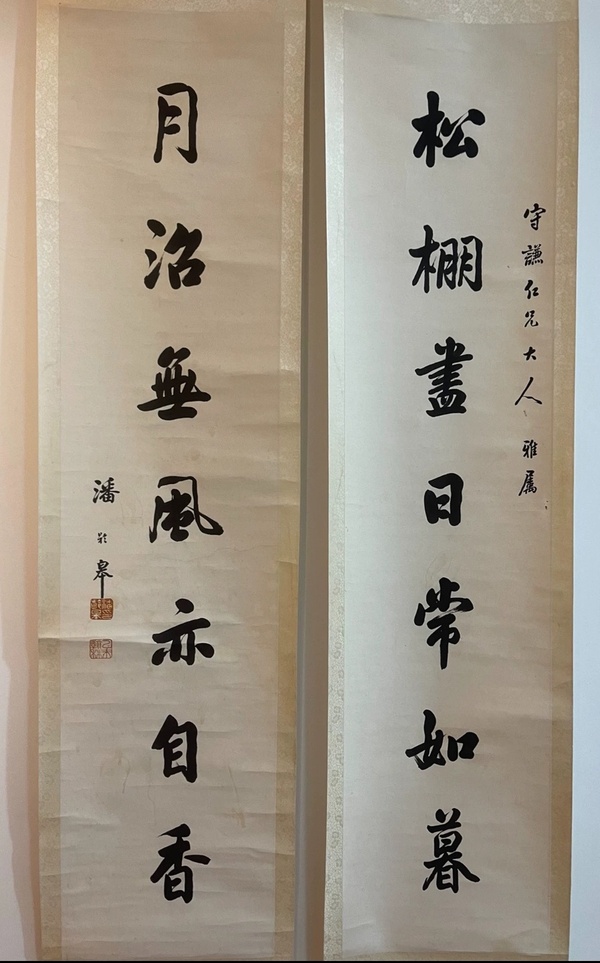 守謙仁兄大人雅屬
松棚盡日常如暮
月沼無風亦自香
潘齡皋